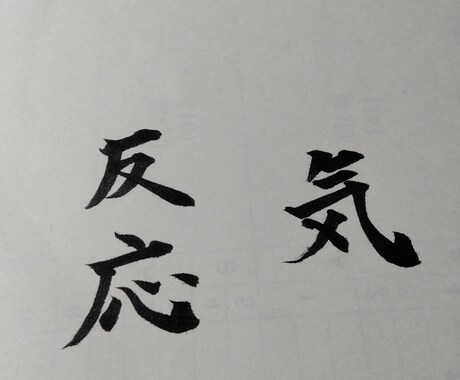 気
反応